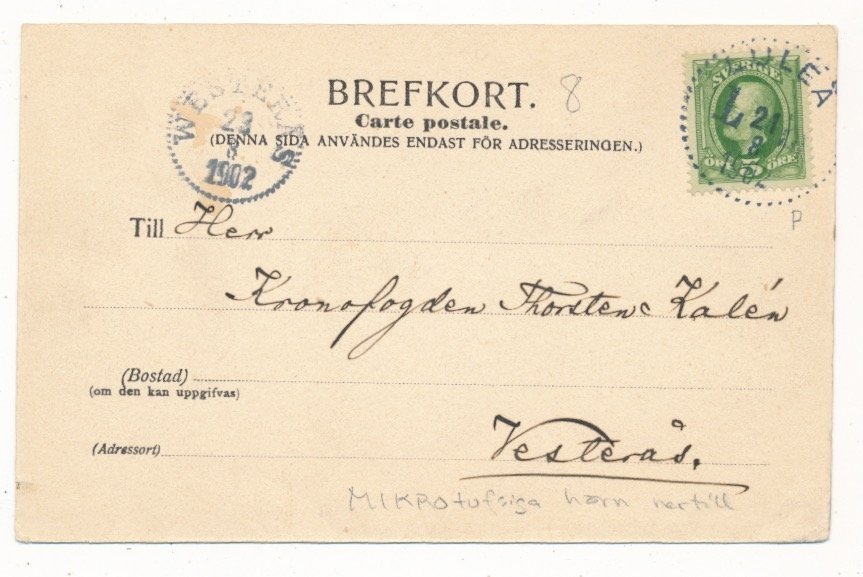 BREFKORT. 8
Carte postale.
(DENNA SIDA ANVÄNDES ENDAST FÖR ADRESSERINGEN.)
WESTERÅS
23
8
1902
SVERIGE
5
ÖRE ÖRE
LULEÅ
L
21
8
P
Till Herr
Kronofogden Thorsten Kalén
(Bostad)
(om den kan uppgifvas)
(Adressort) Vesterås.
MIKROtufsiga hörn nertill